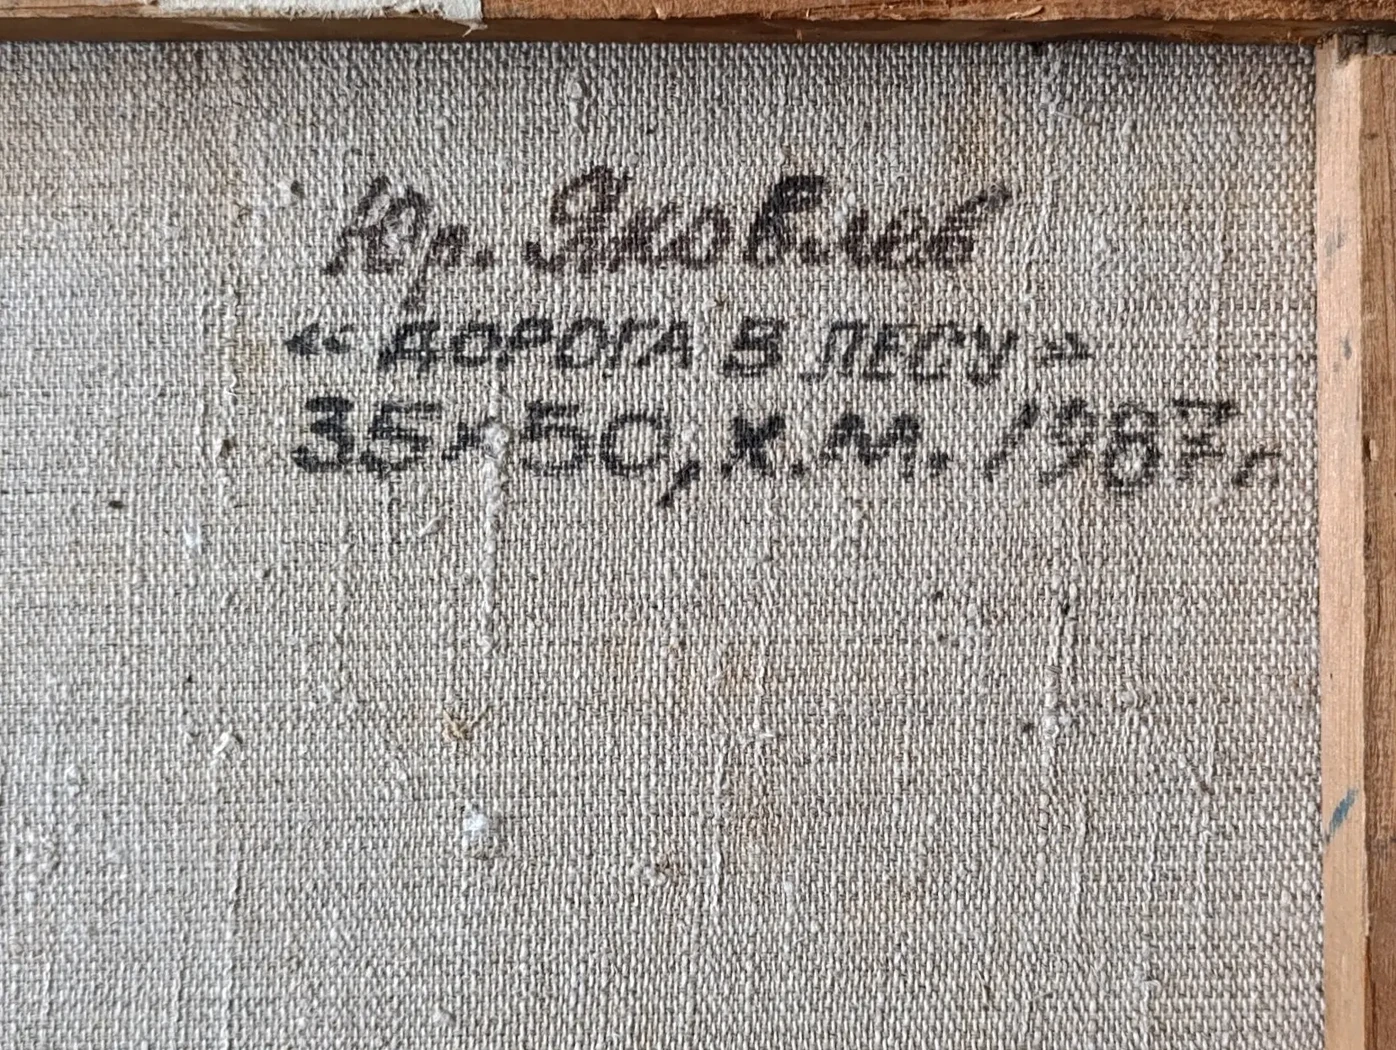 Юр. Яковлев
«ДОРОГА В ЛЕСУ»
35х50, х.м. 1987г.